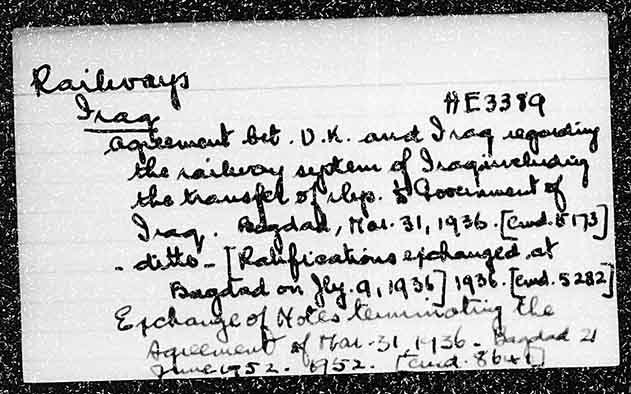 Railways
Iraq
HE3389
Agreement bet. U.K. and Iraq regarding
the railway system of Iraq including
the transfer of rlys. to Government of
Iraq. Bagdad, Mar. 31, 1936. [Cmd. 5173]
- ditto - [Ratifications exchanged at
Bagdad on Jly. 9, 1936] 1936. [Cmd. 5282]
Exchange of Notes terminating the
Agreement of Mar. 31, 1936. Bagdad 21
June 1952. 1952. [Cmd. 8641]